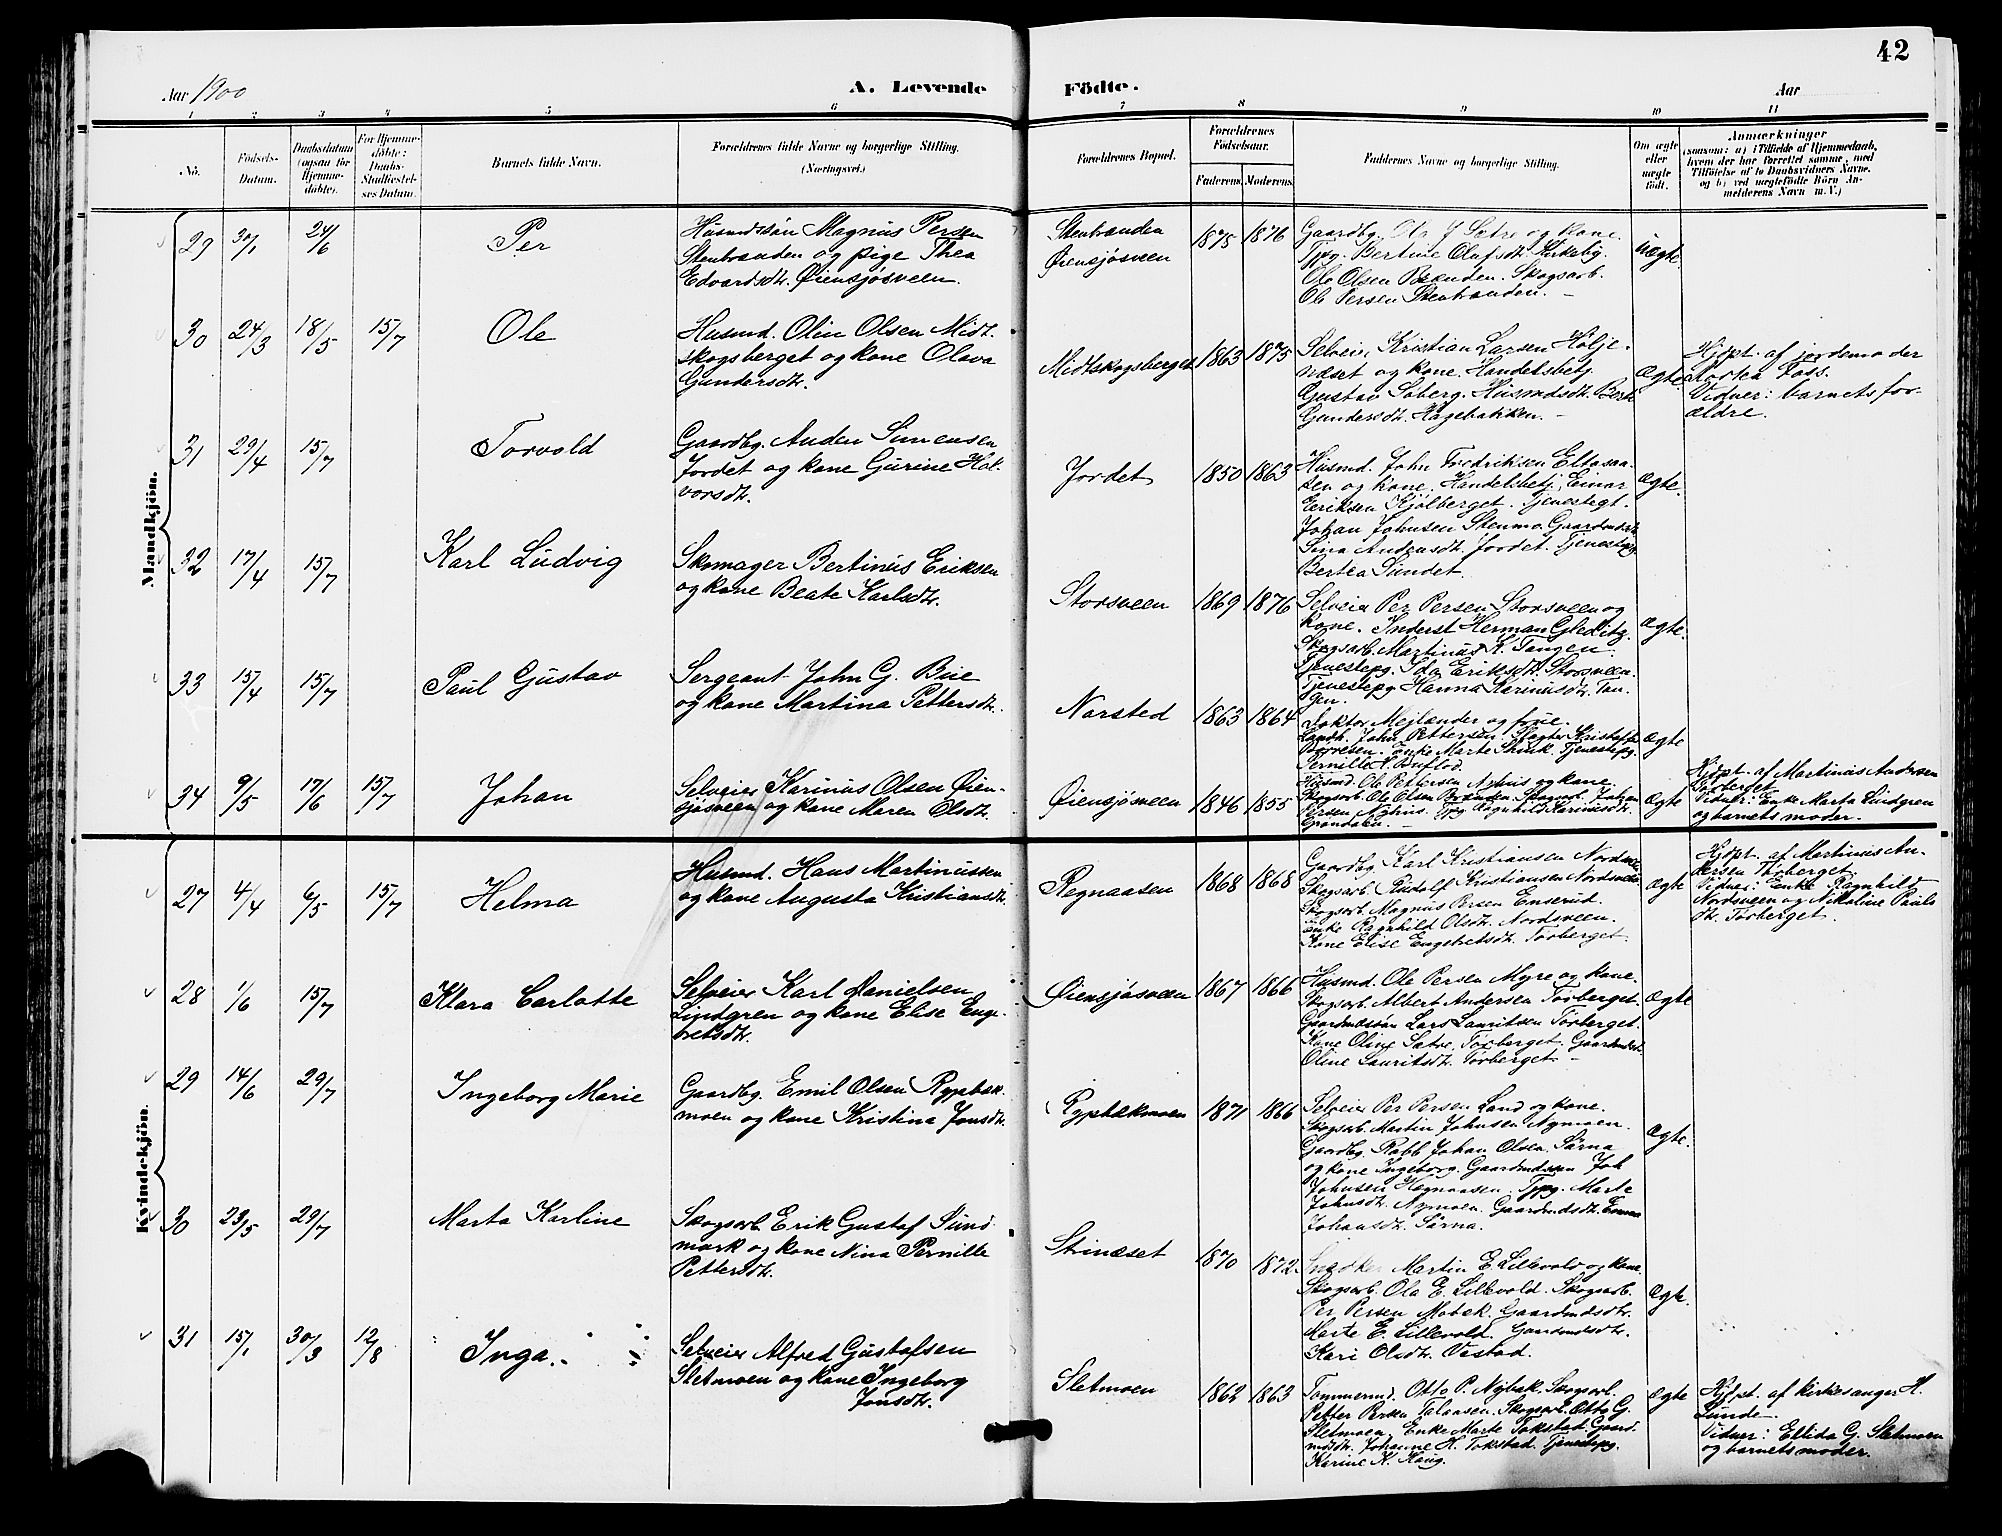 42
Aar 1900
A. Levende
Födte.
Aar
1 2 3 4 5 6 7 8 9 10 11
No.
Födsels-
Datum.
Daabsdatum
(ogsaa for
Hjemme-
döbte).
For Hjemme-
döbte:
Daabs-
Stadfæstel-
ses Datum.
Barnets fulde Navn.
Forældrenes fulde Navne og borgerlige Stilling.
(Næringsvei.)
Forældrenes Bopæl.
Forældrenes
Födselsaar.
Faderens. Moderens.
Faddernes Navne og borgerlige Stilling.
Om ægte
eller
uægte
födt.
Anmærkninger
(saasom: a) i Tilfælde af Hjemmedaab,
hvem der har forrettet samme, med
Tilföielse af to Daabsvidners Navne.
og b) ved uægtefödte Börn An-
melderens Navn m. V.)
Mandkjön.
29 30/1 24/6
Per
Husmdssøn Magnus Persen
Stenbraaden og pige Thea
Edvardsdt. Øiensjøsveen.
Stenbraaden
Øiensjøsveen
1875 1876
Gaardbg. Ole J Sætre og kone.
Tjpg. Bertine Olafsdt. Kirkebg.
Ole Olsen Brænden. Skogsarb.
Ole Persen Stenbraaden. –
uægte.
30 24/3 18/5 15/7
Ole
Husmd. Olin Olsen Midt-
skogsberget og kone Oleva
Gundersdt.
Midtskogsberget
1863 1875
Selveier Kristian Larsen Holje-
næset og kone. Handelsbetj.
Gustav Soberg. Husmdsdt. Berte
Gundersdt. Hagebakken. –
Ægte
Hjdpt. af jordemoder
Martea Foss.
Vidner: barnets for-
ældre.
31 29/4 15/7
Torvald
Gaardbg. Anden Simensen
Jordet og kone Gurine Hal-
vorsdt.
Jordet
1850 1863
Husmd. John Fredriksen Eltaaa-
sen og kone. Handelsbetj. Einar
Eeriksen Kjølberget. Tjenestegt.
Johan Johnsen Stenmo. Gaardmdsdt.
Sina Andensdt. Jordet. Tjenestepg.
Bertea Sundet.
Ægte.
32 17/4 15/7
Karl Ludvig
Skomager Bertinus Eriksen
og kone Beate Karlsdt.
Storsveen
1869 1876
Selveier Per Persen Storsveen og
kone. Inderst Herman Gleditz.
Skogsarb. Martinus K. Tangen.
Tjenestepg. Ida Eriksdt. Storsveen.
Tjenestepg Hanna Karinusdt. Tan-
gen.
Ægte.
33 15/4 15/7
Paul Gustav
Sergeant John G. Bue
og kone Martina Pettersdt.
Norsted
1863 1864
Doktor Mejlænder og frue.
Landh. John Pettersen. Slagter Kristoffer
Borresen. Enke Marte Skink. Tjenestepg.
Pernille N. Buflod.
Ægte
34 9/5 17/6 15/7
Johan
Selveier Karinus Olsen Øien-
sjøsveen og kone Maren Olsdt.
Øiensjøsveen
1846 1855
Husmd. Ole Pettersen Nyhus og kone.
Skogsarb. Ole Olsen Brænden. Skogmd. Johan
Persen Nyhus. Tjpg Ragnhild Karinusdt.
Grøndalen. –
Ægte
Hjdpt. af Martinus Andersen
Tørberget.
Vidner: Enke Marta Lindgren
og barnets moder.
Kvindekjön.
27 4/4 6/5 15/7
Helma
Husmd. Hans Martinussen
og kone Augusta Kristiansdt.
Regnaasen
1868 1868
Gaardbg Karl Kristiansen Nordsveen
Skogsarb. Rudolf Kristiansen Nordsveen
Skogsarb. Magnus Persen Enserud.
Enke Ragnhild Olsdt. Nordsveen.
Kone Elise Engebretsdt. Tørberget.
Ægte
Hjdpt. af Martinus An-
dersen Tørberget.
Vidner: Enke Ragnhild
Nordsveen og Nikoline Pauls-
dt. Tørberget.
28 1/6 15/7
Klara Carlotte
Selveier Karl Danielsen
Lindgren og kone Elise Enge-
bretsdt.
Øiensjøsveen
1867 1866
Husmd. Ole Persen Myre og kone.
Skogsarb. Albert Andersen Tørberget.
Gaardmdssøn Lars Lauritsen Tørberget.
Kone Oline Sætre. Tørberget. Gaardmdsdt.
Oline Lauritsdt. Tørberget –
Ægte
29 14/6 29/7
Ingeborg Marie
Gaardbg. Emil Olsen Ryptæk-
moen og kone Kristina Jonsdt.
Ryptækmoen
1871 1866
Selveier Per Persen Land og kone.
Skogsarb. Martin Johnsen Nymoen.
Gaardbg. Rabb Johan Olsen Särna
og kone Ingeborg. Gaardmdssøn Joh
Johnsen Hegnaasen. Tjpg. Marte
Johnsdt. Nymoen. Gaardmdsdt. Emma
Johansdt. Särna.
Ægte.
30 23/5 29/7
Marta Karline
Skogsarb. Erik Gustaf Sund-
mark og kone Nina Pernille
Pettersdt.
Strinæset
1870 1872
Snedker Martin E. Lillevold og kone.
Skogsarb. Ola E. Lillevold. Skogsarb.
Per Persen Mobæk. Gaardmdsdt.
Marte E. Lillevold. Gaardmdsdt.
Kari Olsdt. Vestad.
Ægte.
31 15/1 30/3 12/8
Inga.
Selveier Alfred Gustafsen
Sletmoen og kone Ingeborg
Jonsdt.
Sletmoen
1862 1863
Tømmermd. Otto P. Nybak. Skogsarb.
Petter Persen Talaasen. Skogsarb. Otto G.
Sletmoen. Enke Marte Tokstad. Gaard-
mdsdt. Johanne H. Tokstad. Tjenestepg.
Karine K. Haug.
Ægte
Hjdpt. af kirkesanger H.
Sunde.
Vidner: Ellida G. Sletmoen
og barnets moder.